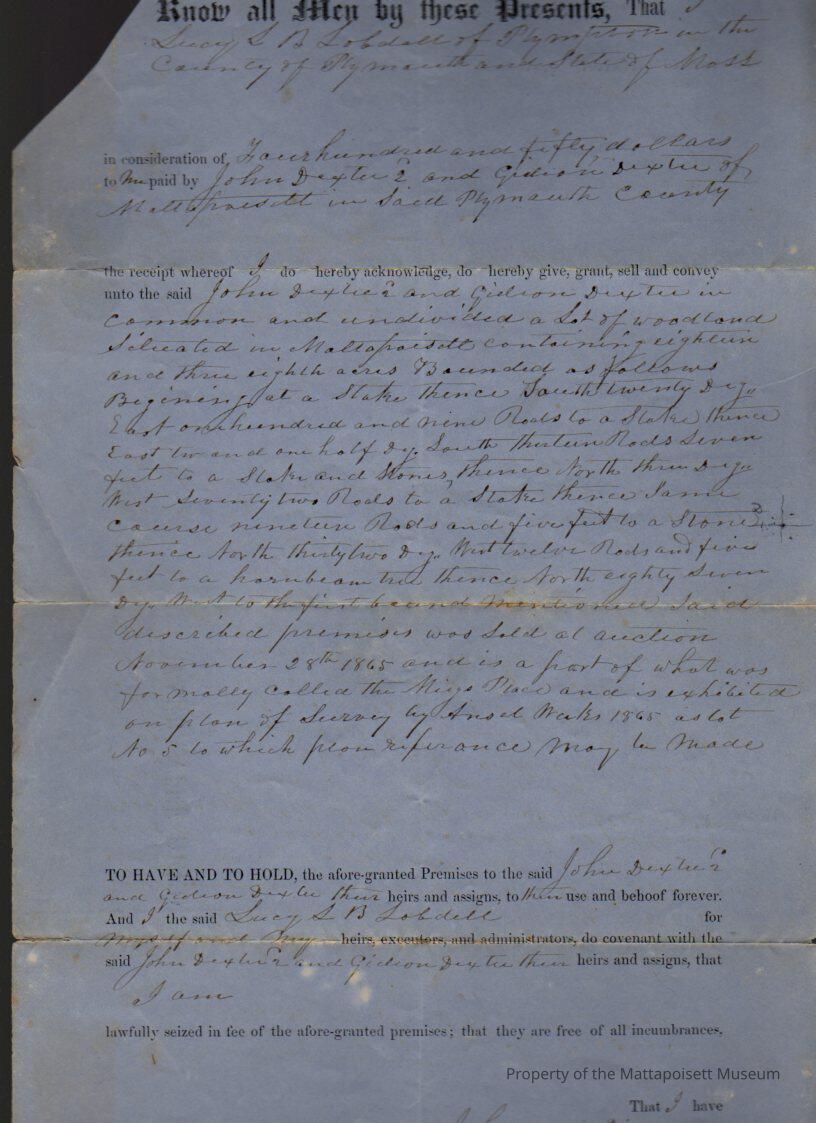 Know all Men by these Presents, That I
Lucy S B Lobdell of Plympton in the
County of Plymouth and State of Mass
in consideration of Fourhundred and fifty dollars
to me paid by John Dexter 2 and Gideon Dexter of
Mattapoisett in Said Plymouth County
the receipt whereof I do hereby acknowledge, do hereby give, grant, sell and convey
unto the said John Dexter 2 and Gideon Dexter in
common and undivided a Lot of woodland
Situated in Mattapoisett containing eighteen
and three eighth acres Bounded as follows
Begining at a Stake thence South twenty Deg.
East onehundred and nine Rods to a Stake thence
East two and one half Dg. South thirteen Rods Seven
feet to a Stake and Stones, thence North three Deg.
West Seventy two Rods to a Stake thence Same
course nineteen Rods and five feet to a Stone
thence North thirty two Dg. West twelve Rods and five
feet to a hornbeam tree thence North eighty Seven
Dg. West to the first bound mentioned Said
described premises was Sold at auction
November 28th 1865 and is a part of what was
formally called the Place and is exhibited
on plan of Survey by Ansel Weeks 1865 as lot
No 5 to which plan referance may be made
TO HAVE AND TO HOLD, the afore-granted Premises to the said John Dexter 2
and Gideon Dexter their heirs and assigns, to their use and behoof forever.
And I the said Lucy S B Lobdell for
myself and my heirs, executors, and administrators, do covenant with the
said John Dexter 2 and Gideon Dexter their heirs and assigns, that
I am
lawfully seized in fee of the afore-granted premises; that they are free of all incumbrances,
Property of the Mattapoisett Museum
That I have